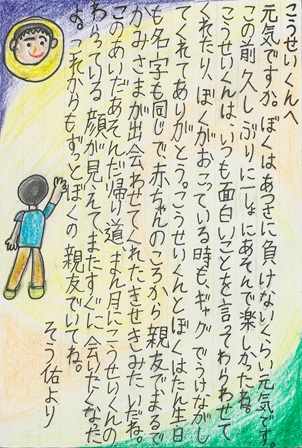 こうせいくんへ
元気ですか。ぼくはあつさに負けないくらい元気です。
この前久しぶりに一しょにあそんで楽しかったね。
こうせいくんは、いつも面白いことを言ってわらわせて
くれたり、ぼくがおこっている時も、ギャグでうけながし
てくれてありがとう。こうせいくんとぼくはたん生日
も名字も同じで赤ちゃんのころから親友でまるで
かみさまが出会わせてくれたきせきみたいだね。
このあいだあそんだ帰り道、まん月にこうせいくんの
わらっている顔が見えて、またすぐに会いたくなった
よ。これからもずっとぼくの親友でいてね。
そう佑より